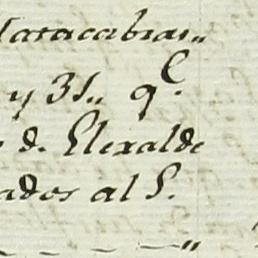 Maracabran„
y 31„ q.e
d. Elexalde
ados al S.